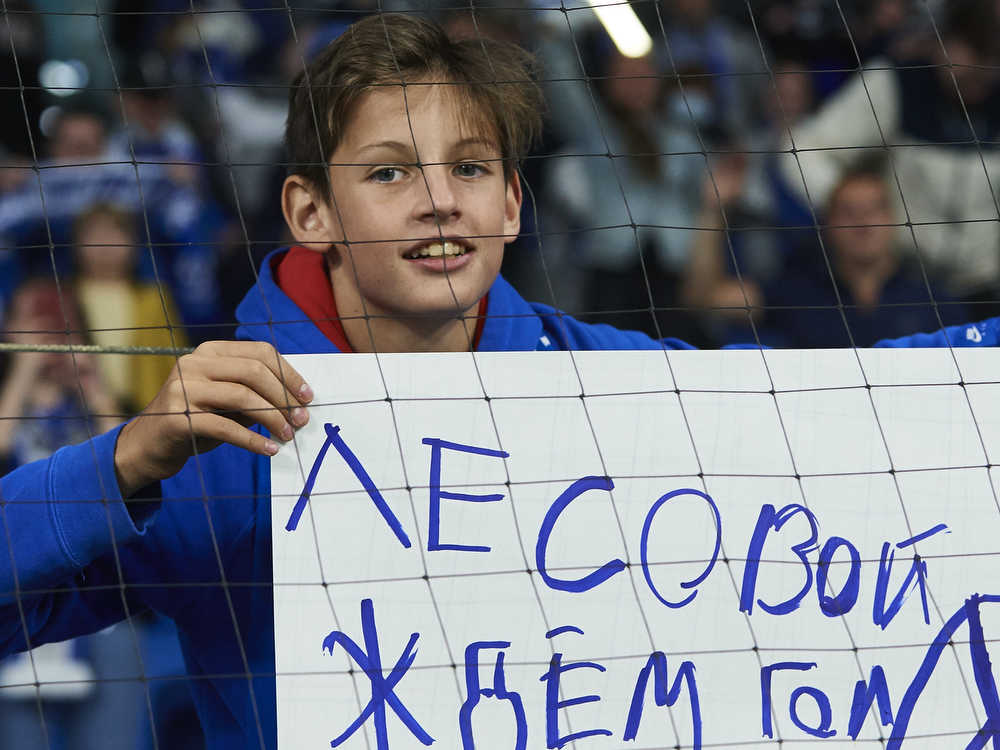 ЛЕСОВОЙ
ЖДЁМ ГОЛ